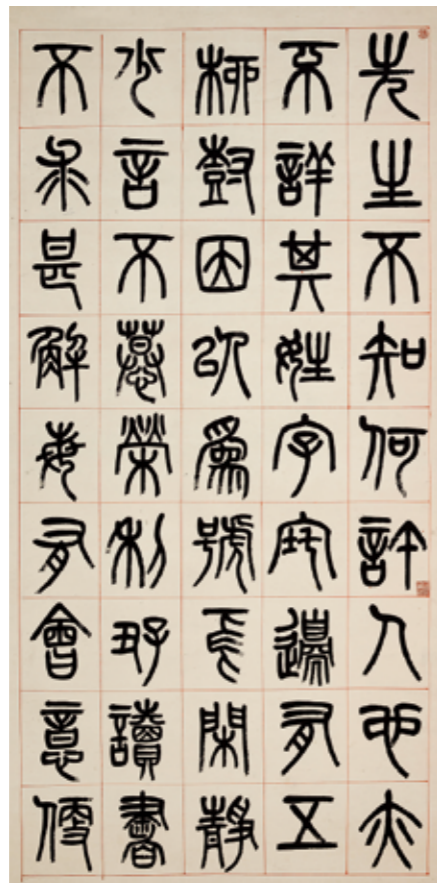 先生不知何許人也亦
不詳其姓字宅邊有五
柳樹因以為號焉閑靜
少言不慕榮利好讀書
不求甚解每有會意便